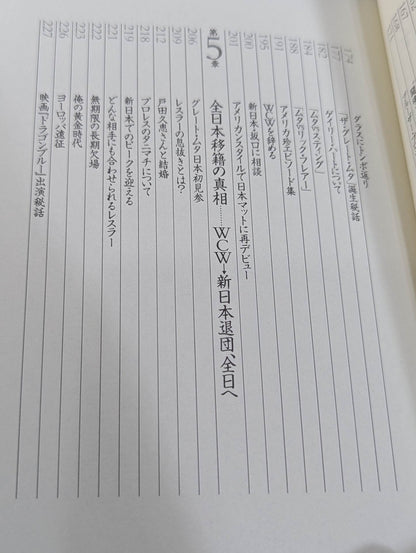 174 ダラスにトンボ返り
「ザ・グレート・ムタ」誕生秘話
ゲイリー・ハートについて
182 「ムタvsスティング」
「ムタvsリック・フレアー」
188 アメリカ珍エピソード集
191 WCWを辞める
195 新日本・坂口に相談
200 アメリカンスタイルで日本マットに再デビュー
201
第5章 全日本移籍の真相……WCW→新日本退団、全日へ
206 グレート・ムタ日本初見参
209 レスラーの息抜きとは!?
212 戸田久恵さんと結婚
218 プロレスのタニマチについて
219 新日本でのピークを迎える
221 どんな相手にも合わせられるレスラー
222 無期限の長期欠場
223 俺の黄金時代
226 ヨーロッパ遠征
227 映画『ドラゴンブルー』出演秘話